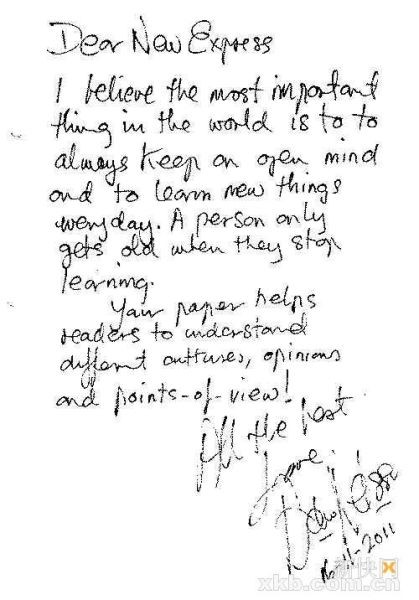 Dear New Express
I believe the most important
thing in the world is to to
always keep an open mind
and to learn new things
everyday. A person only
gets old when they stop
learning.
Your paper helps
readers to understand
different cultures, opinions
and points-of-view!
All the best
2011
新快
xkb.com.cn